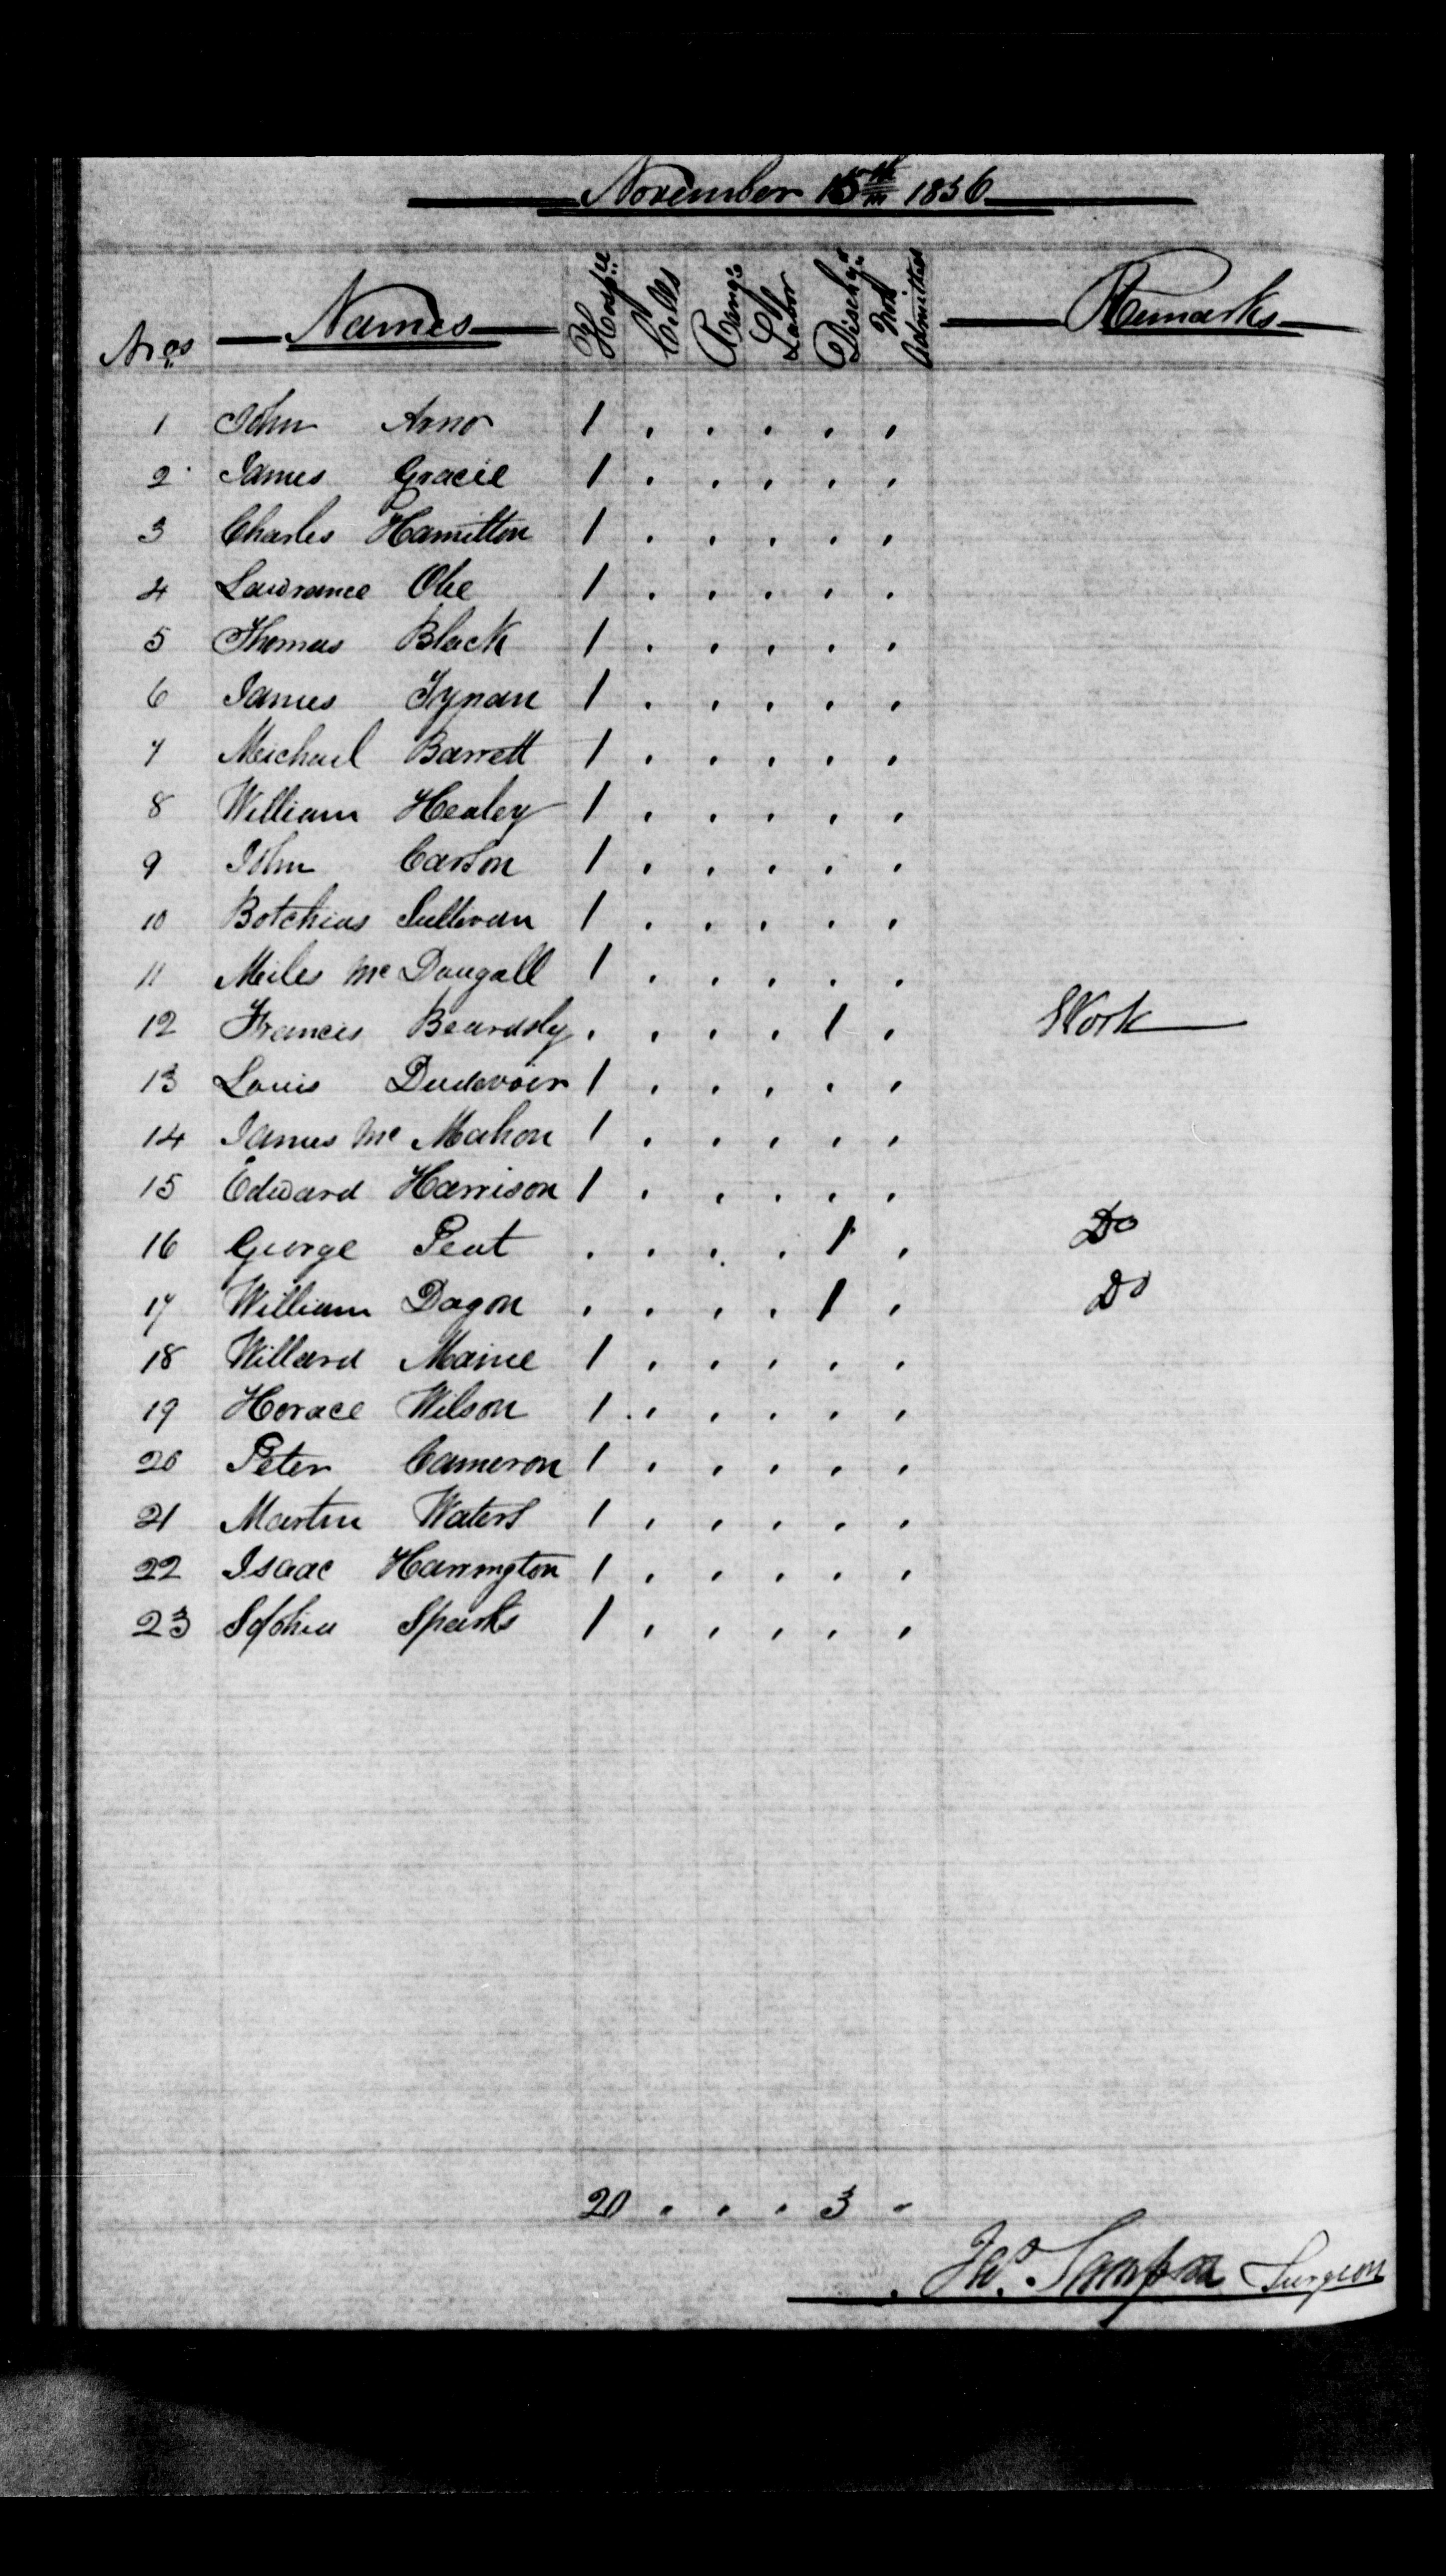 November 15th 1856
Nros Names Hospl Cells Rems Lt Labor Dischgd Not Admitted Remarks
1 John Arno 1 . . . . .
2 James Gracie 1 . . . . .
3 Charles Hamilton 1 . . . . .
4 Lawrance Ohe 1 . . . . .
5 Thomas Black 1 . . . . .
6 James Tynan 1 . . . . .
7 Meichael Barrett 1 . . . . .
8 William Healey 1 . . . . .
9 John Carson 1 . . . . .
10 Botchius Sullivan 1 . . . . .
11 Meiles Mc Dougall 1 . . . . .
12 Francis Beardsly . . . . 1 . Work
13 Louis Dudevoir 1 . . . . .
14 James Mc Mahon 1 . . . . .
15 Edward Harrison 1 . . . . .
16 George Peat . . . . 1 . Do
17 William Dagon . . . . 1 . Do
18 Willard Maine 1 . . . . .
19 Horace Wilson 1 . . . . .
20 Peter Cameron 1 . . . . .
21 Martin Waters 1 . . . . .
22 Isaac Harrington 1 . . . . .
23 Sophia Sparks 1 . . . . .
20 . . . 3 .
Jas. Sampson Surgeon